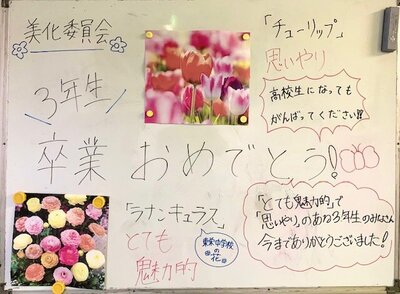 美化委員会
「チューリップ」
思いやり
高校生になっても
がんばってください!!
3年生
卒業おめでとう!
「ラナンキュラス」
とても
魅力的
中学校
の
花
「とても魅力的」で
「思いやり」のある3年生のみなさん
今までありがとうございました!